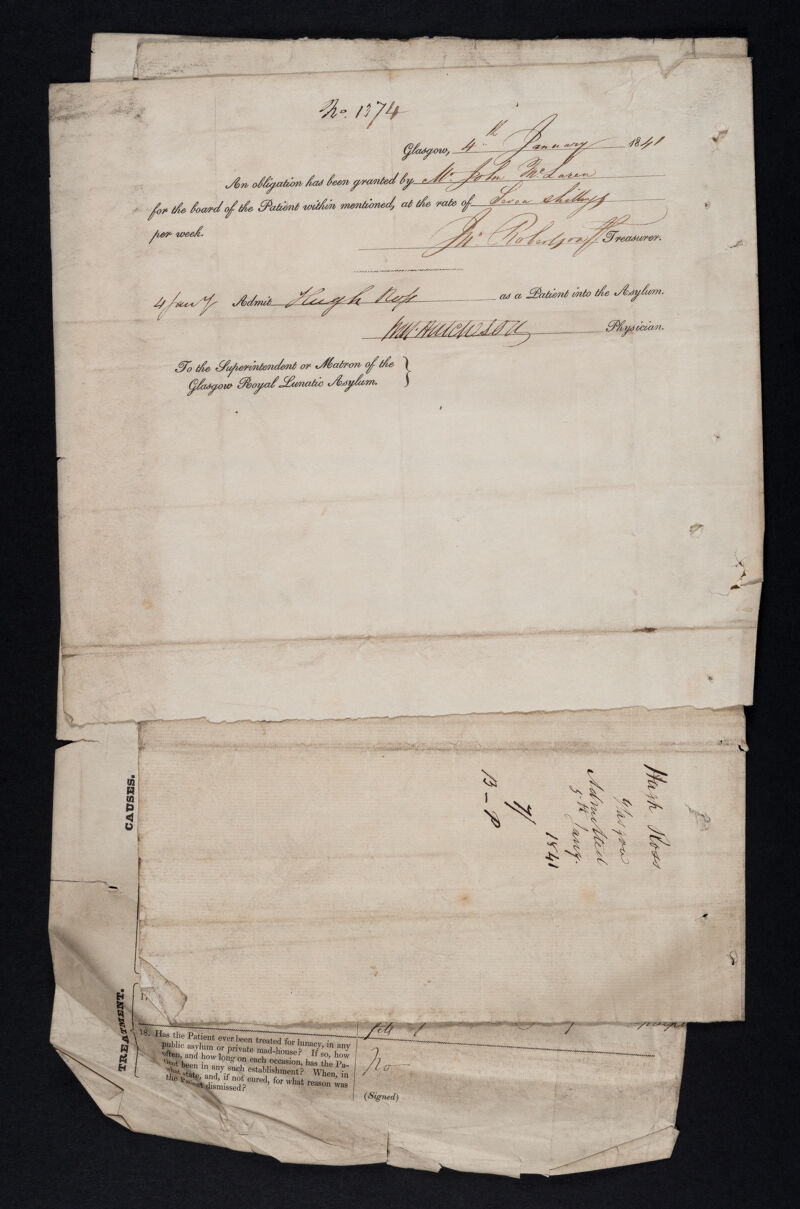 No. 1374
Glasgow, 4th January 1841
An obligation has been granted by Mr John McLaren
for the board of the Patient within mentioned, at the rate of Seven Shillings
per week. Jn. Robertson Treasurer.
4 Jany Admit Hugh Ross as a Patient into the Asylum.
Wm. Hutcheson Physician.
To the Superintendent or Matron of the
Glasgow Royal Lunatic Asylum.
Hugh Ross
Glasgow
Admitted
5th Jany.
1841
7/
B - P
CAUSES.
TREATMENT.
18. Has the Patient ever been treated for lunacy, in any
public asylum or private mad-house? If so, how
often, and how long on each occasion, has the Pa-
tient been in any such establishment? When, in
what state, and, if not cured, for what reason was
the Patient dismissed?
No
(Signed)